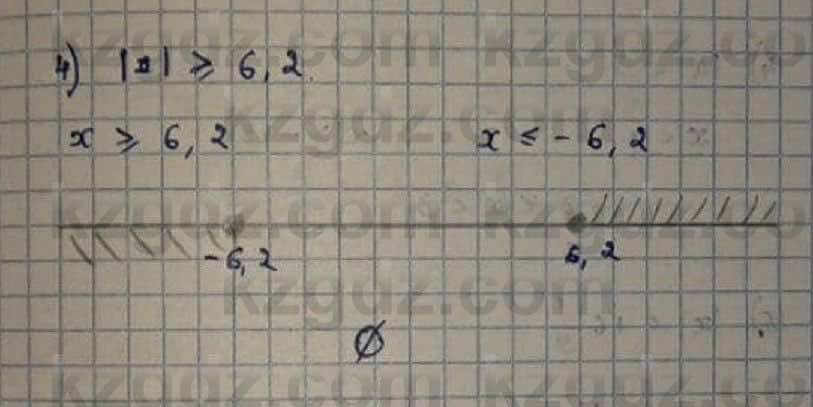 4) |x| ≥ 6,2.
x ≥ 6,2 x ≤ -6,2
-6,2 6,2
Ø
kzgdz.com kzgdz.co
kzgdz.com
kzgdz.com kzgdz.co
kzgdz.com
kzgdz.com kzgdz.co